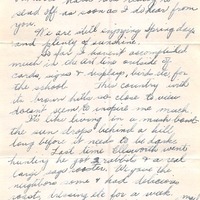 send off as soon as I do hear from
you.
We are still enjoying spring days
and plenty of sunshine.
So far I haven't accomplished
much in the art line outside of
cards, signs & displays, birds etc for
the school. This country with
its brown hills so close to us
doesnt seem to inspire me much.
It's like living in a mush bowl
the sun drops behind a hill
long before it needs to be dark.
Last time Ellsworth went
hunting he got 2 rabbits & a
large rooster. We gave the
neighbors some & had delicious
roast, for a week